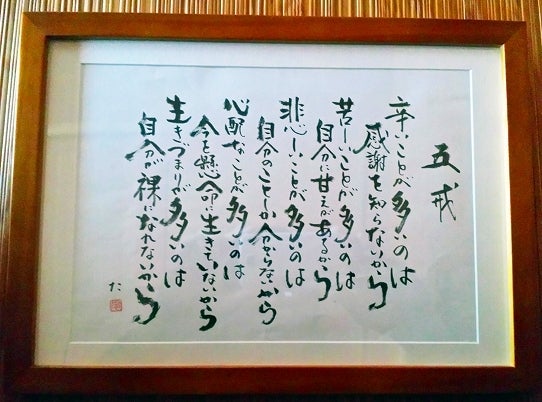 五戒
辛いことが多いのは
感謝を知らないから
苦しいことが多いのは
自分に甘えがあるから
悲しいことが多いのは
自分のことしか分からないから
心配なことが多いのは
今を懸命に生きていないから
生きづまりが多いのは
自分が裸になれないから